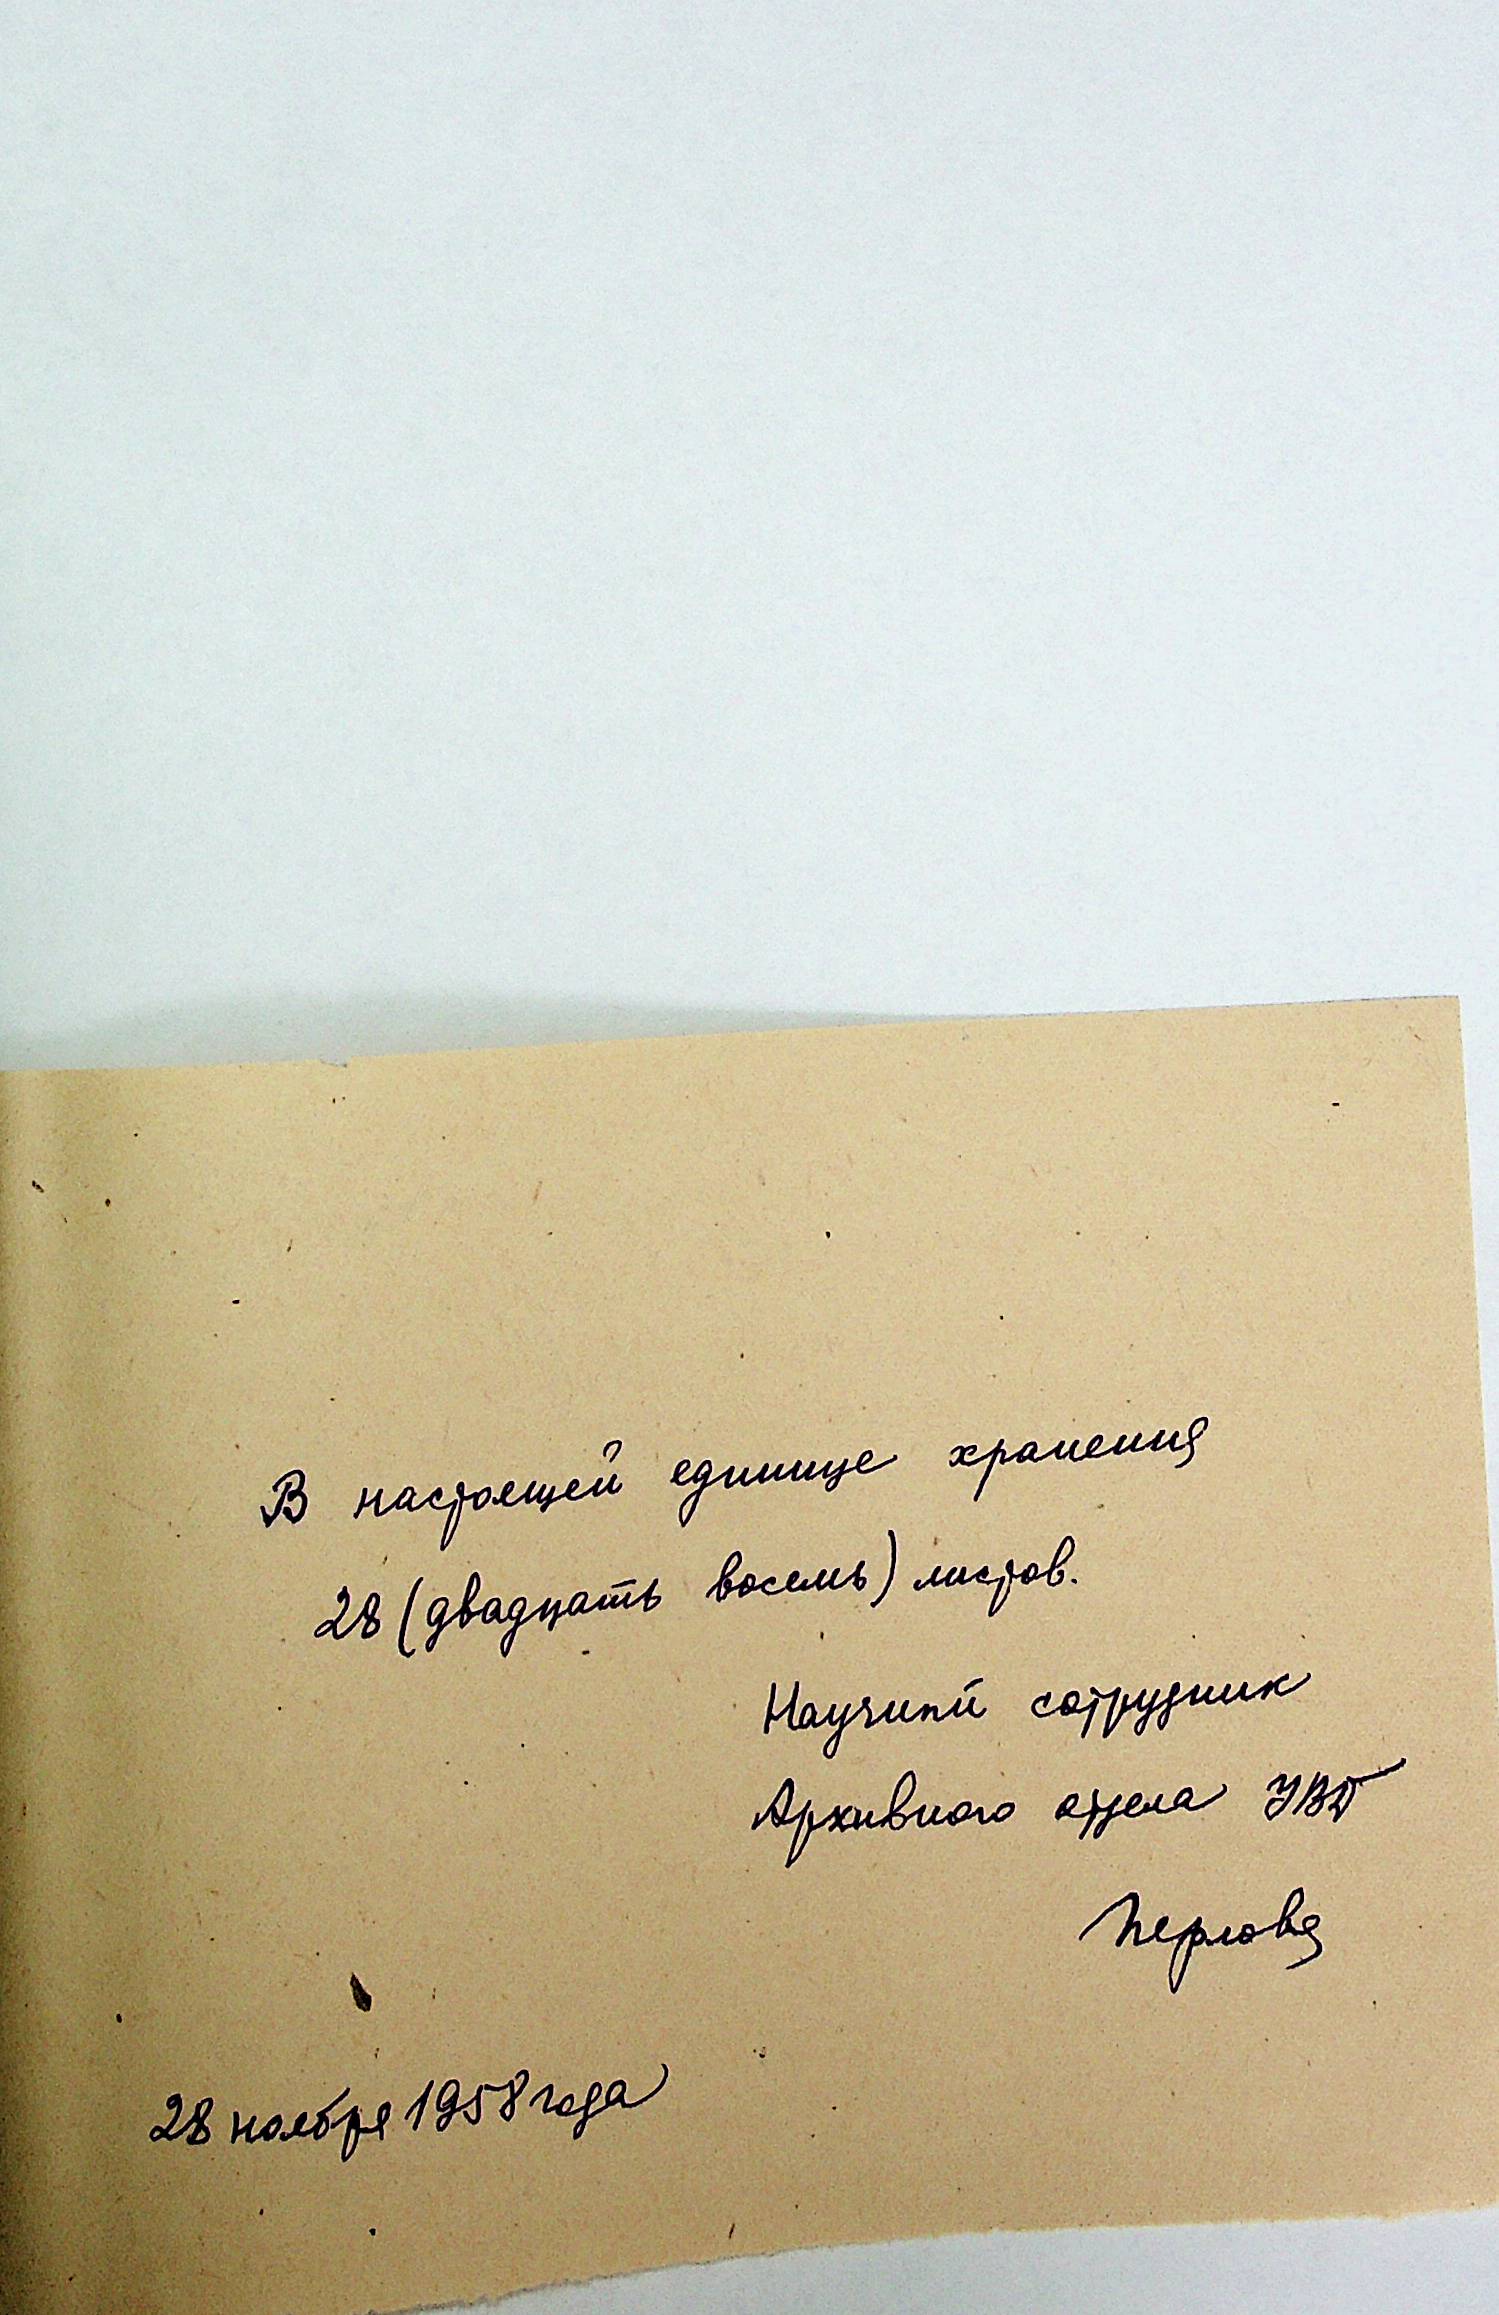 В настоящей единице хранения
28 (двадцать восемь) листов.
Научный сотрудник
Архивного отдела УВД
Перлова
28 ноября 1958 года